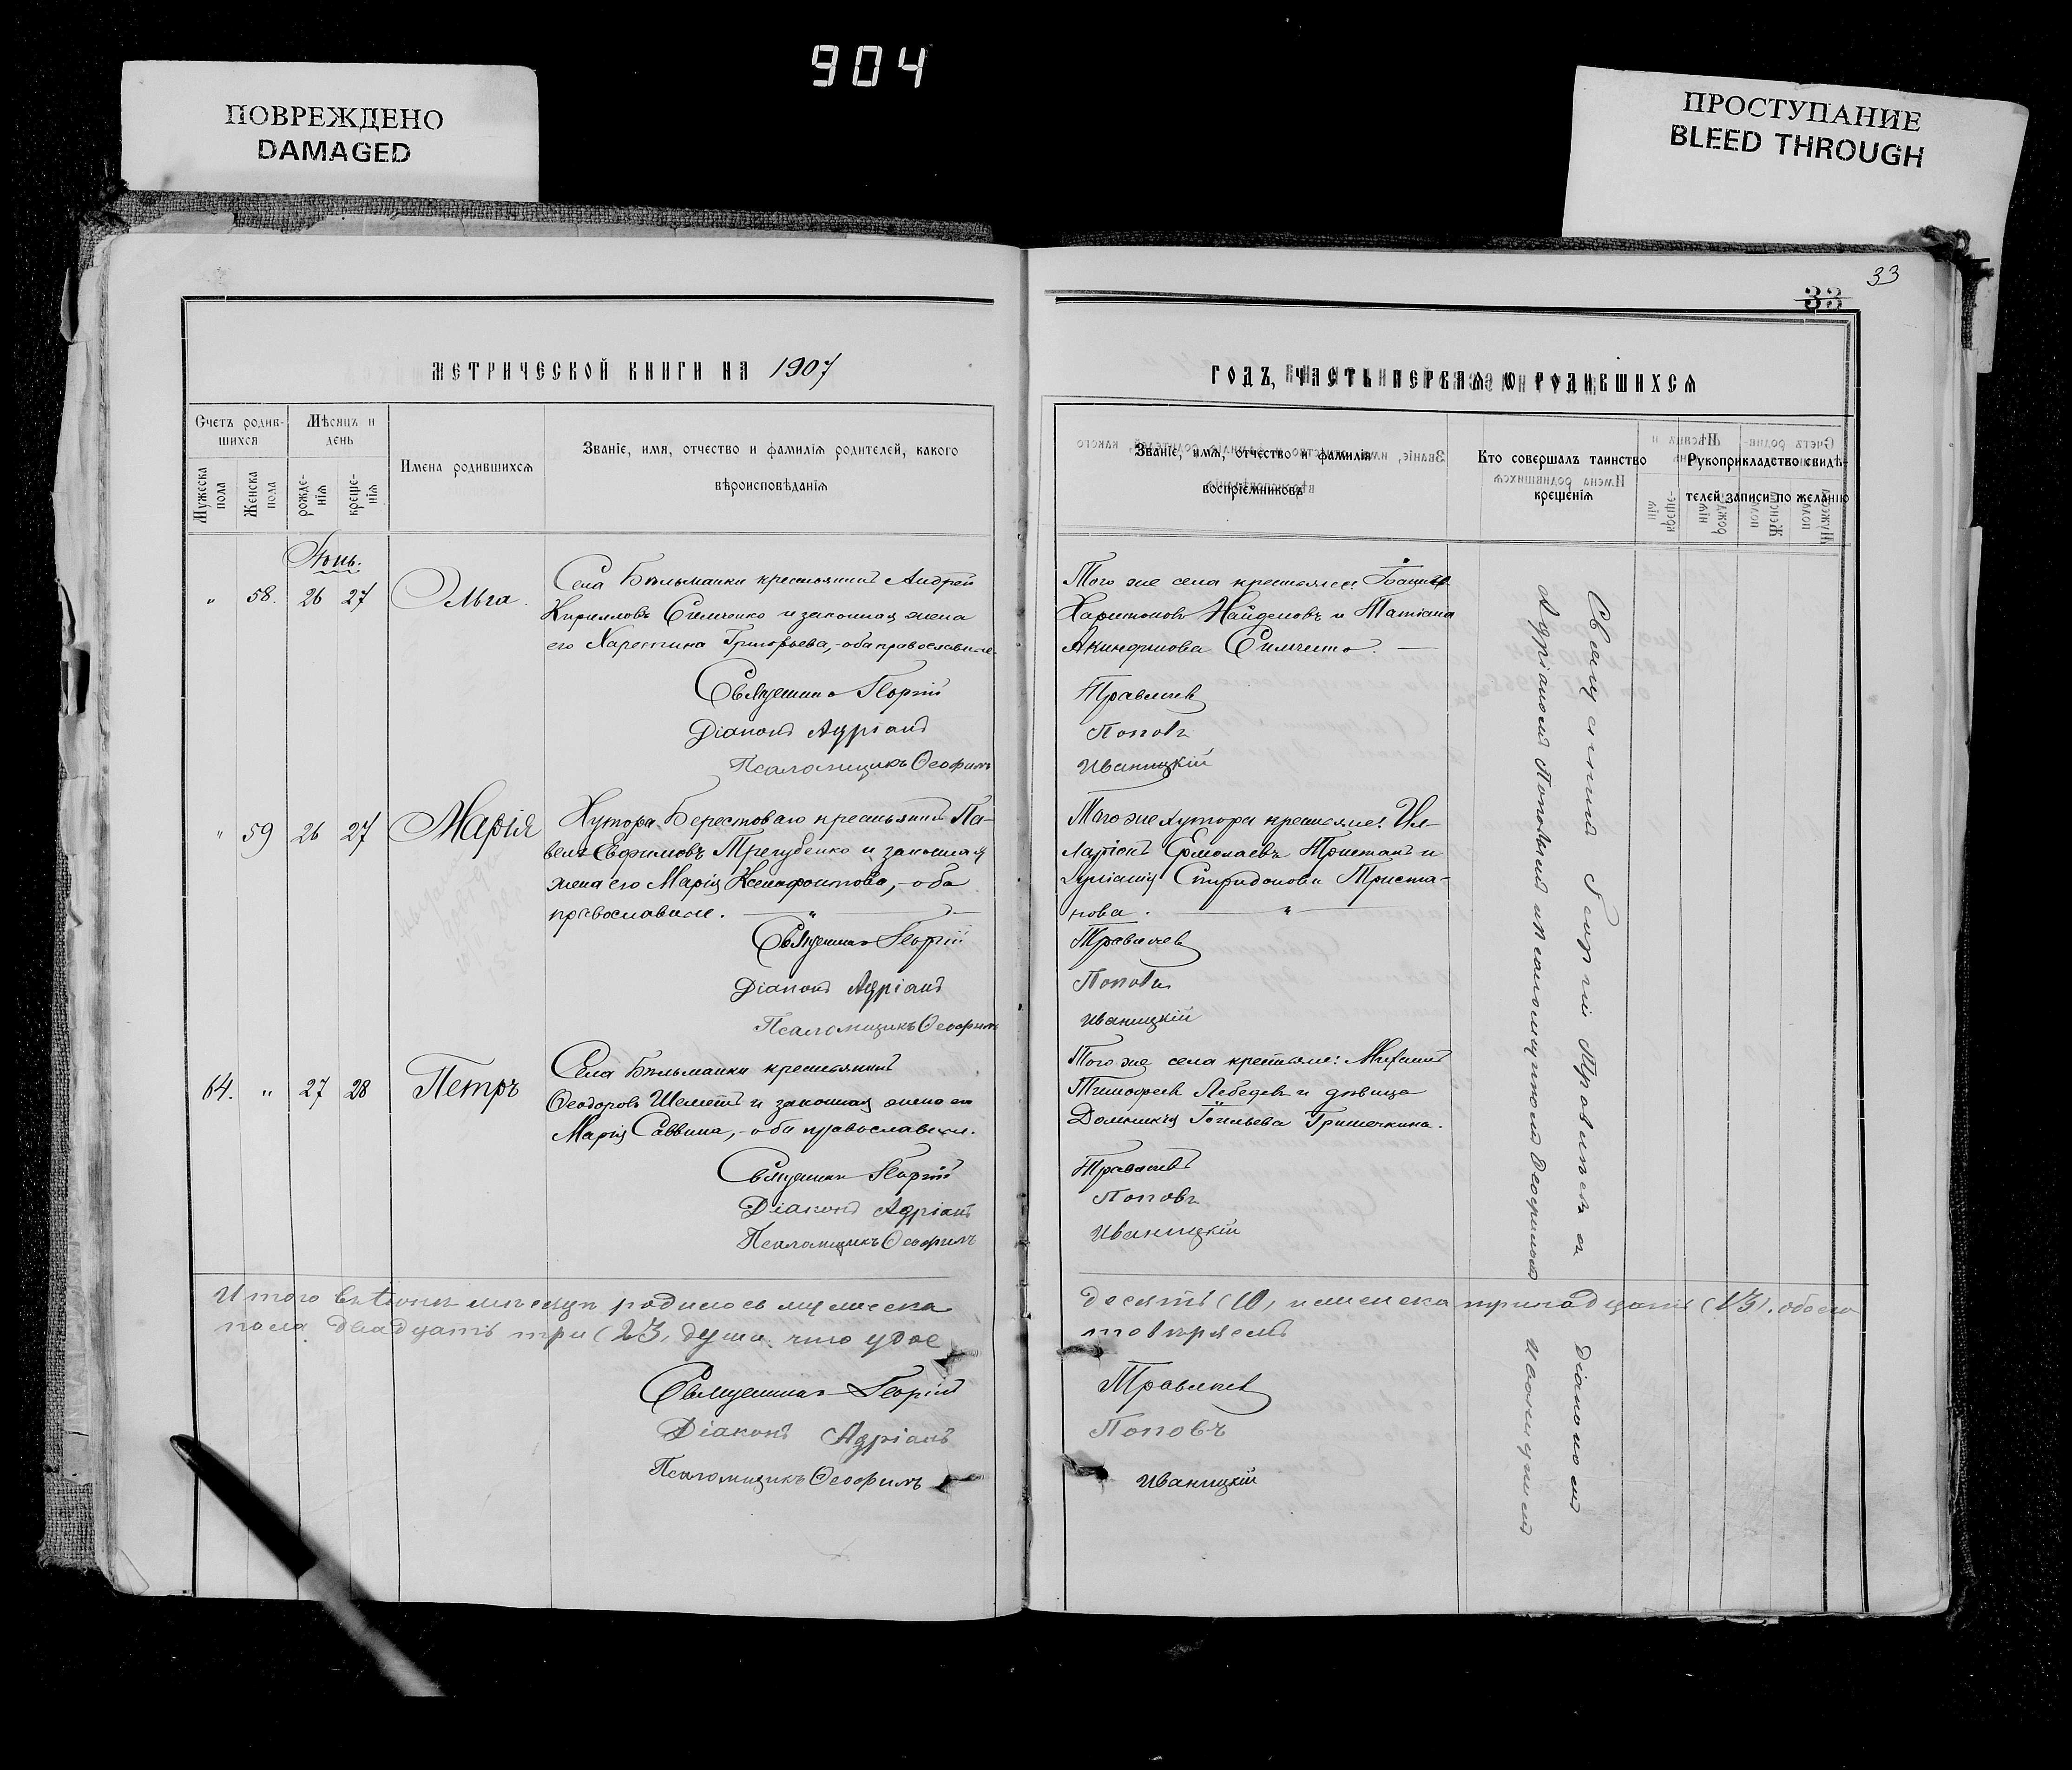 904
ПОВРЕЖДЕНО
DAMAGED
ПРОСТУПАНИЕ
BLEED THROUGH
33
33
МЕТРИЧЕСКОЙ КНИГИ НА 1907
Счетъ родив-
шихся
Мѣсяцъ и
день
Мужеска пола
Женска пола
рожде-
нія
креще-
нія
Имена родившихся
Званіе, имя, отчество и фамилія родителей, какого
вѣроисповѣданія
Іюнь.
" 58. 26 27 Ольга.
Села Бѣльманки крестьянинъ Андрей
Кирилловъ Симченко и законная жена
его Харитина Григорьева, - оба православные
Священникъ Георгій
Діаконъ Адріанъ
Псаломщикъ Ѳеофилъ
" 59 26 27 Марія
Хутора Берестоваго крестьянинъ Па-
велъ Евфимовъ Трегубенко и законная
жена его Марія Ксенофонтова, - оба
православные. "
Священникъ Георгій
Діаконъ Адріанъ
Псаломщикъ Ѳеофилъ
64. " 27 28 Петръ
Села Бѣльманки крестьянинъ
Ѳеодоровъ Шеметъ и законная жена его
Марія Саввина, - оба православные.
Священникъ Георгій
Діаконъ Адріанъ
Псаломщикъ Ѳеофилъ
Итого въ Іюнѣ мѣсяцѣ родилось мужеска
пола двадцать три (23) души что удо
Священникъ Георгій
Діаконъ Адріанъ
Псаломщикъ Ѳеофилъ
ГОДЪ, ЧАСТЬ ПЕРВАЯ О РОДИВШИХСЯ
Званіе, имя, отчество и фамилія
воспріемниковъ
Кто совершалъ таинство
крещенія
Рукоприкладство свидѣ-
телей записи по желанію
Того же села крестьяне:
Харитоновъ Найденовъ и Татіана
Акиндинова Симченко.
Травлѣевъ
Поповъ
Иваницкій
Того же хутора крестьяне: Ил-
ларіонъ Ермолаевъ Тристанъ и
Спиридонова Триста-
нова. "
Травлѣевъ
Поповъ
Иваницкій
Того же села крестьяне: Михаилъ
Тимофеевъ Лебедевъ и дѣвица
Домникія Гришечкина.
Травлѣевъ
Поповъ
Иваницкій
десять (10, и женска тринадцать (13). обоего
товѣряемъ
Травлѣевъ
Поповъ
Иваницкій
Священникъ Георгій Травлѣевъ съ Діакономъ
Адріаномъ Поповымъ и псаломщикомъ Ѳеофиломъ Иваницкимъ